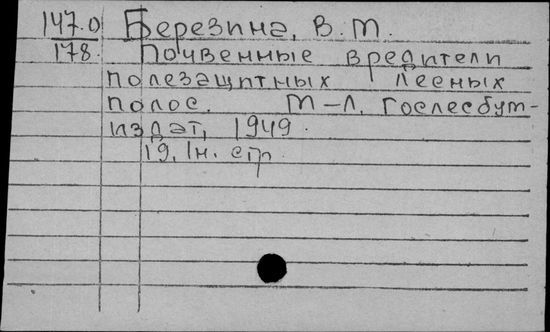 147.0 Березина, В. М.
178. Почвенные вредители
полезащитных лесных
полос. М-Л. Гослесбум-
издат, 1949.
19, 1н. стр.